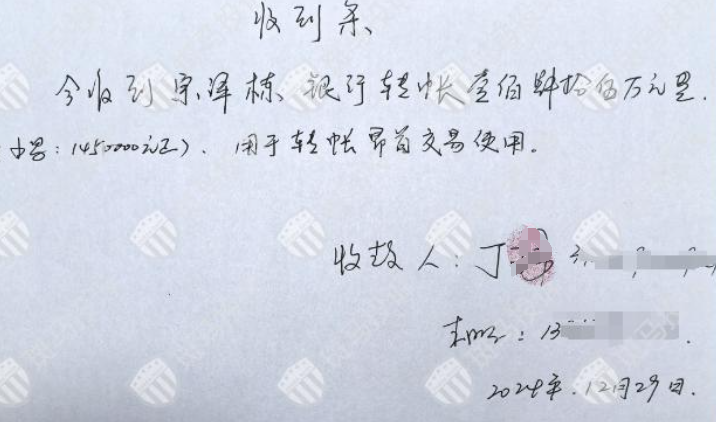 收到条
今收到宗泽栋、银行转帐壹佰肆拾伍万元整.
小写:1450000元正)、用于转帐昂首交易使用。
收款人:丁
:13
2024年.12月29日.